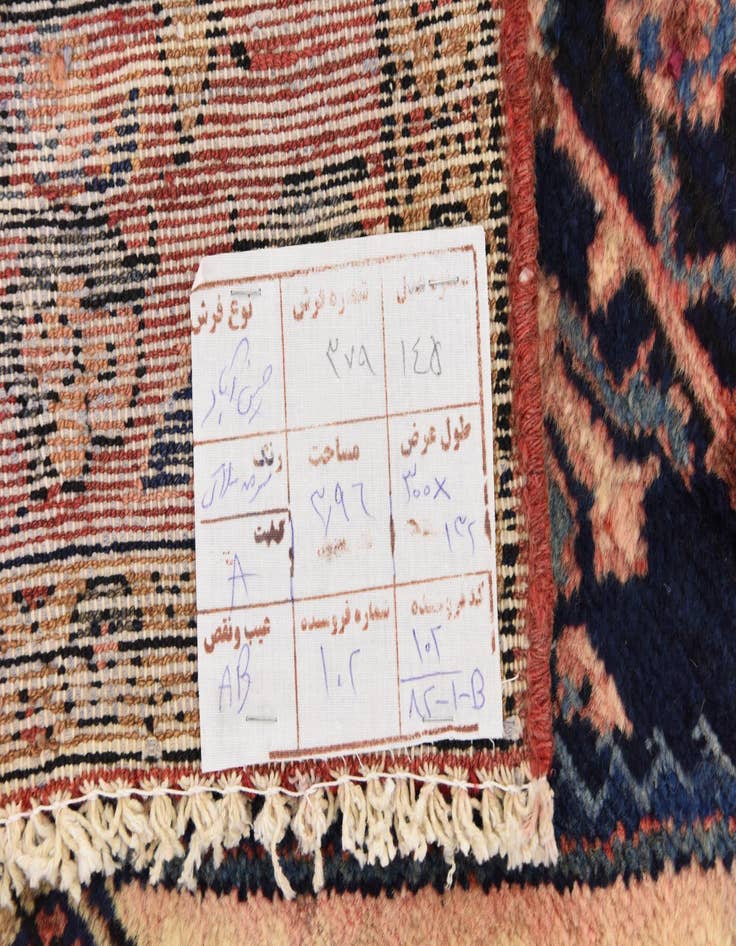 شماره فرش نوع فرش
۱۴۵ ۳۷۹ حسن آباد
طول عرض مساحت رنگ
۳۰۰X ۳٫۹۶ سرمه
۱۳۲ کلیت
A
کد فروشنده شماره فروشنده عیب و نقص
۱۰۲ ۱۰۲ AB
۸۲-۱-B